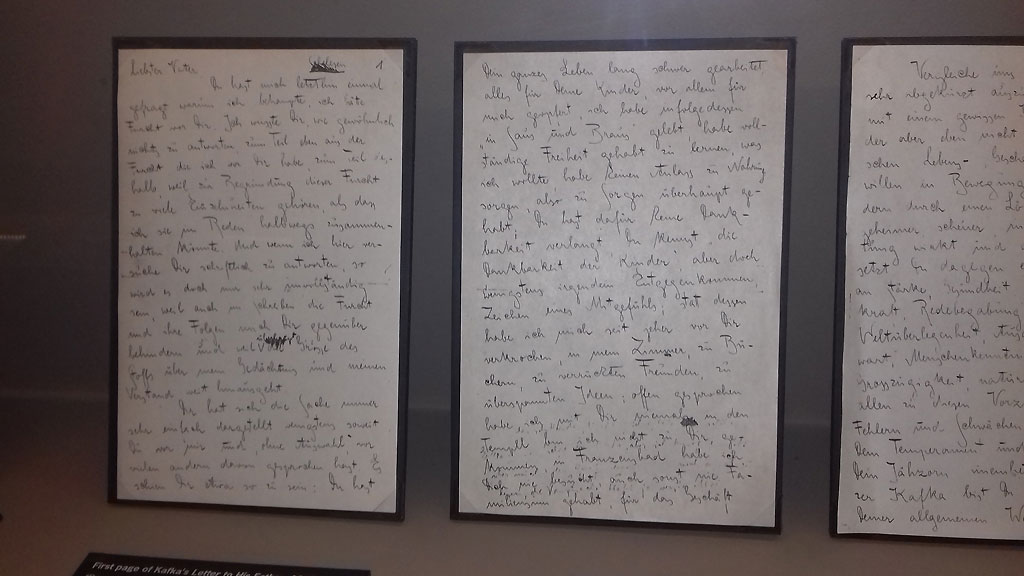 Liebster Vater,
Du hast mich letzthin einmal
gefragt, warum ich behaupte, ich hätte
Furcht vor Dir. Ich wusste Dir, wie gewöhnlich,
nichts zu antworten, zum Teil eben aus der
Furcht die ich vor Dir habe, zum Teil des-
halb weil zur Begründung dieser Furcht
zu viele Einzelnheiten gehören, als dass
ich sie im Reden halbwegs zusammen-
halten könnte. Und wenn ich hier ver-
suche Dir schriftlich zu antworten, so
wird es doch nur sehr unvollständig
sein, weil auch im Schreiben die Furcht
und ihre Folgen mich Dir gegenüber
behindern und weil Grösse des
Stoffs über mein Gedächtnis und meinen
Verstand weit hinausgeht.
Dir hat sich die Sache immer
sehr einfach dargestellt, wenigstens soweit
Du vor mir und, ohne Auswahl, vor
vielen andern davon gesprochen hast. Es
schien Dir etwa so zu sein: Du hast
1
Dein ganzes Leben lang schwer gearbeitet,
alles für Deine Kinder, vor allem für
mich geopfert, ich habe infolgedessen
„in Saus und Braus" gelebt, habe voll-
ständige Freiheit gehabt zu lernen was
ich wollte, habe keinen Anlass zu Nahrungs-
sorgen, also zu Sorgen überhaupt ge-
habt; Du hast dafür keine Dank-
barkeit verlangt, Du kennst „die
Dankbarkeit der Kinder", aber doch
wenigstens irgendein Entgegenkommen,
Zeichen eines Mitgefühls; statt dessen
habe ich mich seit jeher vor Dir
verkrochen, in mein Zimmer, zu Bü-
chern, zu verrückten Freunden, zu
überspannten Ideen; offen gesprochen
habe ich mit Dir niemals, in den
Tempel bin ich nicht zu Dir ge-
kommen, in Franzensbad habe ich
Dich nie besucht, auch sonst nie Fa-
miliensinn gehabt, für das Geschäft
Vergleiche uns
sehr abgekürzt auszu
mit einem gewissen
der aber den nicht
schen Lebens- Geschä
willen in Bewegung
dern durch einen Lö
geheimer, scheuer, in
tung wirkt und o
setzt. Du dagegen
an Stärke, Gesundheit
kraft, Redebegabung
Weltüberlegenheit, Aus
wart, Menschenkenntn
Grosszügigkeit, natür
allen zu diesen Vorz
Fehlern und Schwächen
Dein Temperament und
Dein Jähzorn
zer Kafka bist Du
Deiner allgemeinen W
First page of Kafka's Letter to His Father